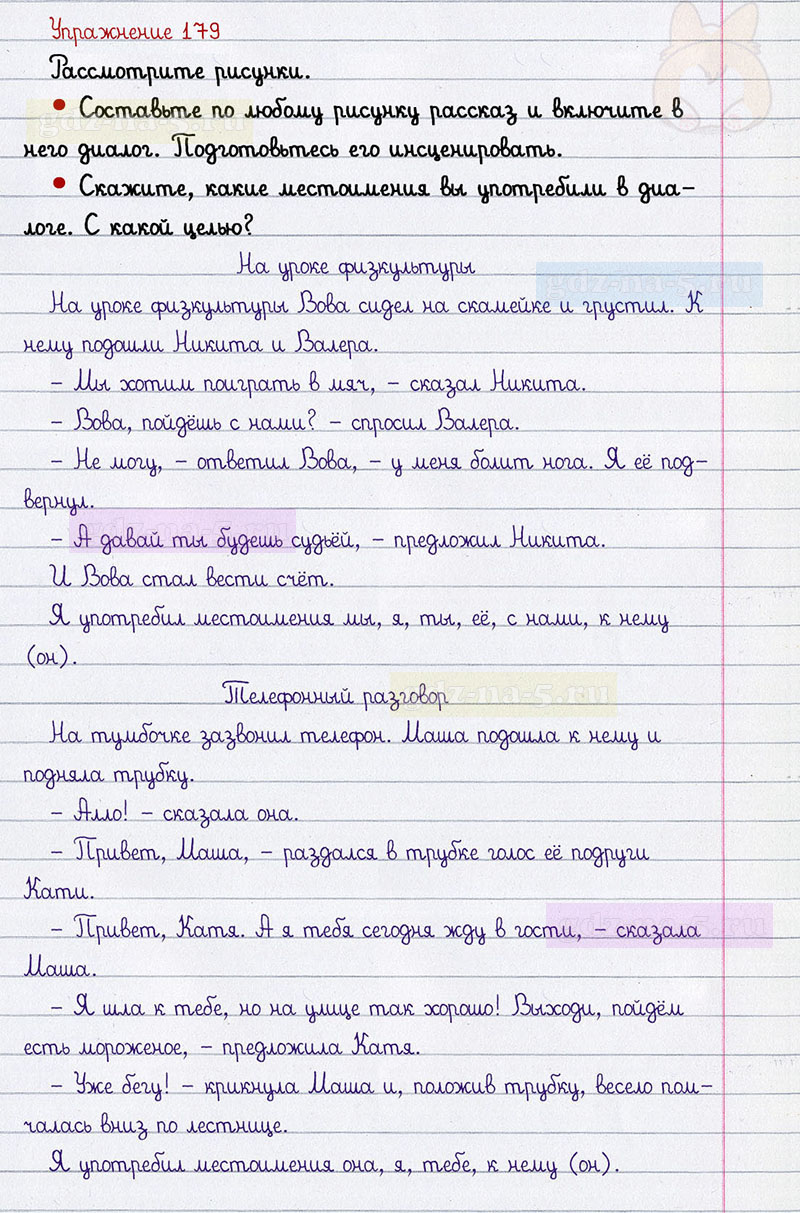 Упражнение 179
Рассмотрите рисунки.
• Составьте по любому рисунку рассказ и включите в
него диалог. Подготовьтесь его инсценировать.
• Скажите, какие местоимения вы употребили в диа-
логе. С какой целью?
На уроке физкультуры
gdz-na-5.ru
На уроке физкультуры Вова сидел на скамейке и грустил. К
нему подошли Никита и Валера.
– Мы хотим поиграть в мяч, – сказал Никита.
– Вова, пойдёшь с нами? – спросил Валера.
– Не могу, – ответил Вова, – у меня болит нога. Я её под-
вернул.
– А давай ты будешь судьёй, – предложил Никита.
И Вова стал вести счёт.
Я употребил местоимения мы, я, ты, её, с нами, к нему
(он).
Телефонный разговор
gdz-na-5.ru
На тумбочке зазвонил телефон. Маша подошла к нему и
подняла трубку.
– Алло! – сказала она.
– Привет, Маша, – раздался в трубке голос её подруги
Кати.
– Привет, Катя. А я тебя сегодня жду в гости, – сказала
Маша.
– Я шла к тебе, но на улице так хорошо! Выходи, пойдём
есть мороженое, – предложила Катя.
– Уже бегу! – крикнула Маша и, положив трубку, весело пом-
чалась вниз по лестнице.
Я употребил местоимения она, я, тебе, к нему (он).